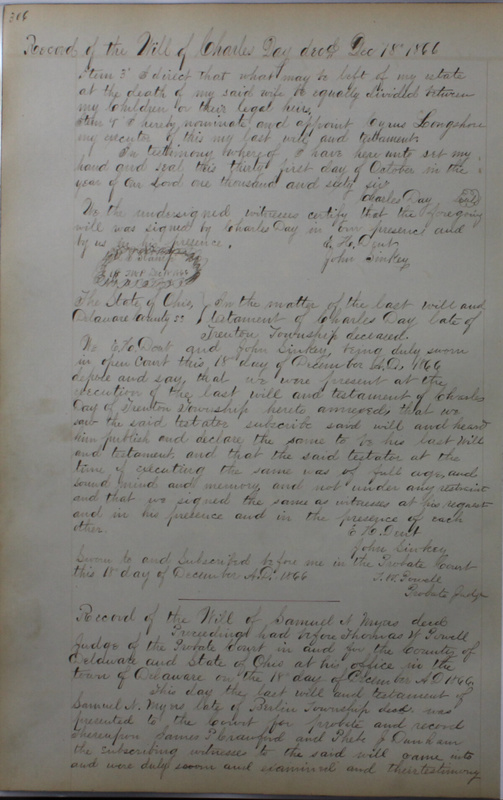 306
Record of the Will of Charles Day decd Dec 18th 1866
Item 3d I direct that what may be left of my estate
at the death of my said wife be equally divided between
my Children or their legal heirs
Item 4 I hereby nominate and appoint Cyrus Longshore
my executor of this my last will and testament.
In testimony whereof I have here unto set my
hand and seal this thirty first day of October in the
year of our Lord one thousand and sixty six
Charles Day Seal
We the undersigned witnesses certify that the foregoing
will was signed by Charles Day in our presence and
by us in his presence.
E. H. Dent
John Sinkey
The State of Ohio, } In the matter of the last will and
Delaware County SS } testament of Charles Day late of
Trenton Township deceased.
We E. H. Dent and John Sinkey being duly sworn
in open Court this 18th day of December A.D. 1866
depose and say that we were present at the
execution of the last will and testament of Charles
Day of Trenton Township hereto annexed, that we
saw the said testator subscribe said will and heard
him publish and declare the same to be his last Will
and testament and that the said testator at the
time of executing the same was of full age, and
sound mind and memory and not under any restraint
and that we signed the same as witnesses at his request
and in his presence and in the presence of each
other.
E H. Dent
John Sinkey
Sworn to and Subscribed before me in the Probate Court
this 18th day of December A.D. 1866
T. W. Powell
Probate Judge
Record of the Will of Samuel N. Myers decd
Proceedings had before Thomas W. Powell
Judge of the Probate Court in and for the County of
Delaware and State of Ohio at his office in the
town of Delaware on the 18th day of December A.D 1866,
This day the last will and testament of
Samuel N. Myers late of Berlin Township decd. was
presented to the Court for probate and record
whereupon James P. Crawford and J. Dunham
the subscribing witnesses to the said will came into
and were duly sworn and examined and their testimony